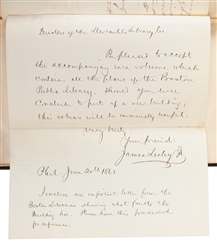 Directors of the Mercantile Library Co.
Be pleased to accept
the accompanying rare volume which
contains all the plans of the Boston
Public Library. Should you ever
conclude to put up a new building,
this volume will be immensely useful.
Very truly
Your friend
James Lesley Jr
Phil. June 20th 1861
I enclose an important letter from the
Boston Librarian showing what faults the
Building has. Please have this preserved
for reference